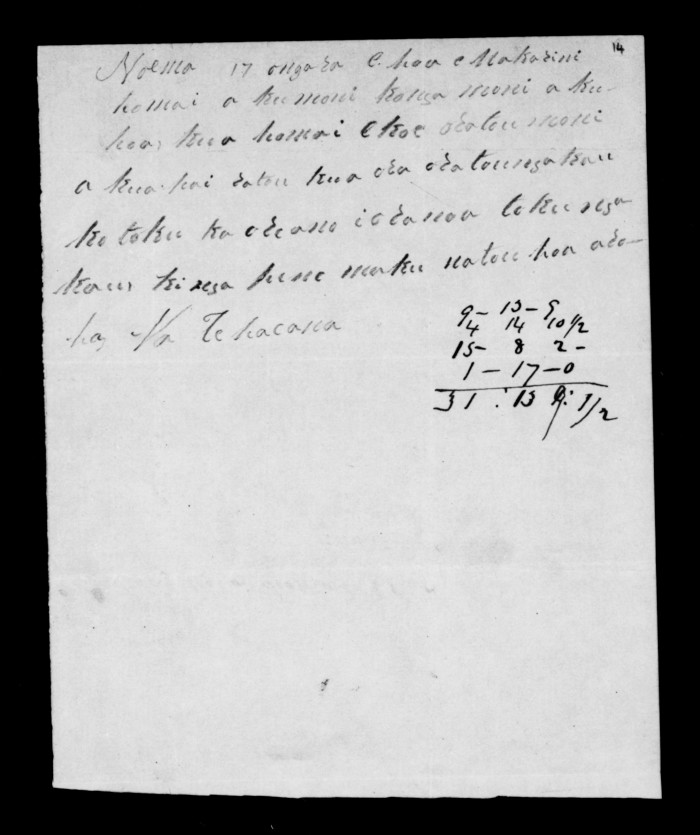 14
Noema 17 ongara E hoa e Makarini
homai a ku moni konga moni a ku
hoa, kua homai e koe oratou moni
a kua hoi ratou kua ora oratou ngakau
ko toku ka ore ano i ora noa toku nga
kau, ki nga hune maku natou hoa aro
ha, Na Te hacana
9 - 13 - 5
4 14 10 1/2
15 - 8 2 -
1 - 17 - 0
31 : 13 : 1/2